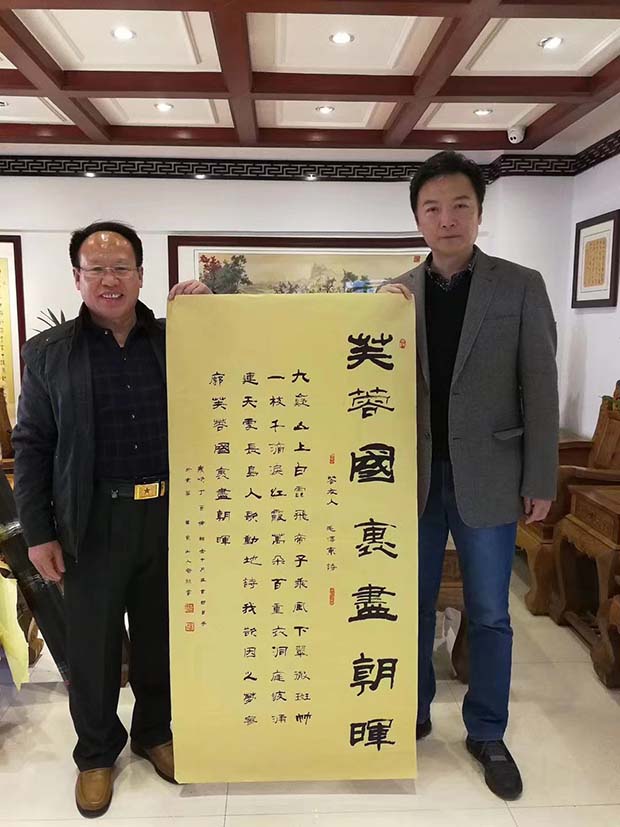 芙蓉國裏盡朝暉
答友人 毛澤東詩
九嶷山上白雲飛帝子乘風下翠微斑竹
一枝千滴淚紅霞萬朵百重衣洞庭波涌
連天雪長島人歌動地詩我欲因之夢寥
廓芙蓉國裏盡朝暉
歲次丁酉